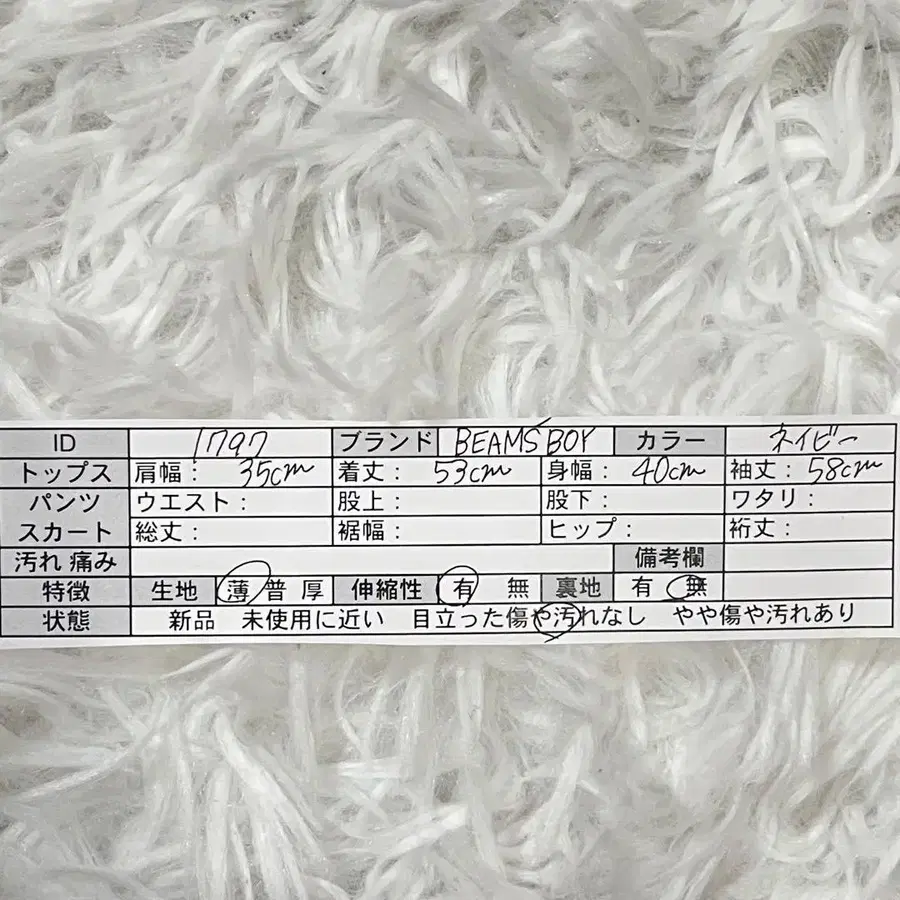 ID 1797 ブランド BEAMS BOY カラー ネイビー
トップス 肩幅: 35cm 着丈: 53cm 身幅: 40cm 袖丈: 58cm
パンツ ウエスト: 股上: 股下: ワタリ:
スカート 総丈: 裾幅: ヒップ: 裄丈:
汚れ 痛み 備考欄
特徴 生地 薄 普 厚 伸縮性 有 無 裏地 有 無
状態 新品 未使用に近い 目立った傷や汚れなし やや傷や汚れあり